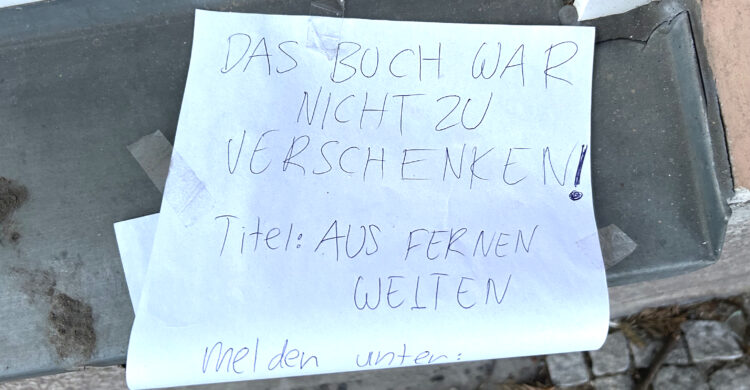 DAS BUCH WAR
NICHT ZU
VERSCHENKEN!
Titel: AUS FERNEN
WELTEN
Melden unter: